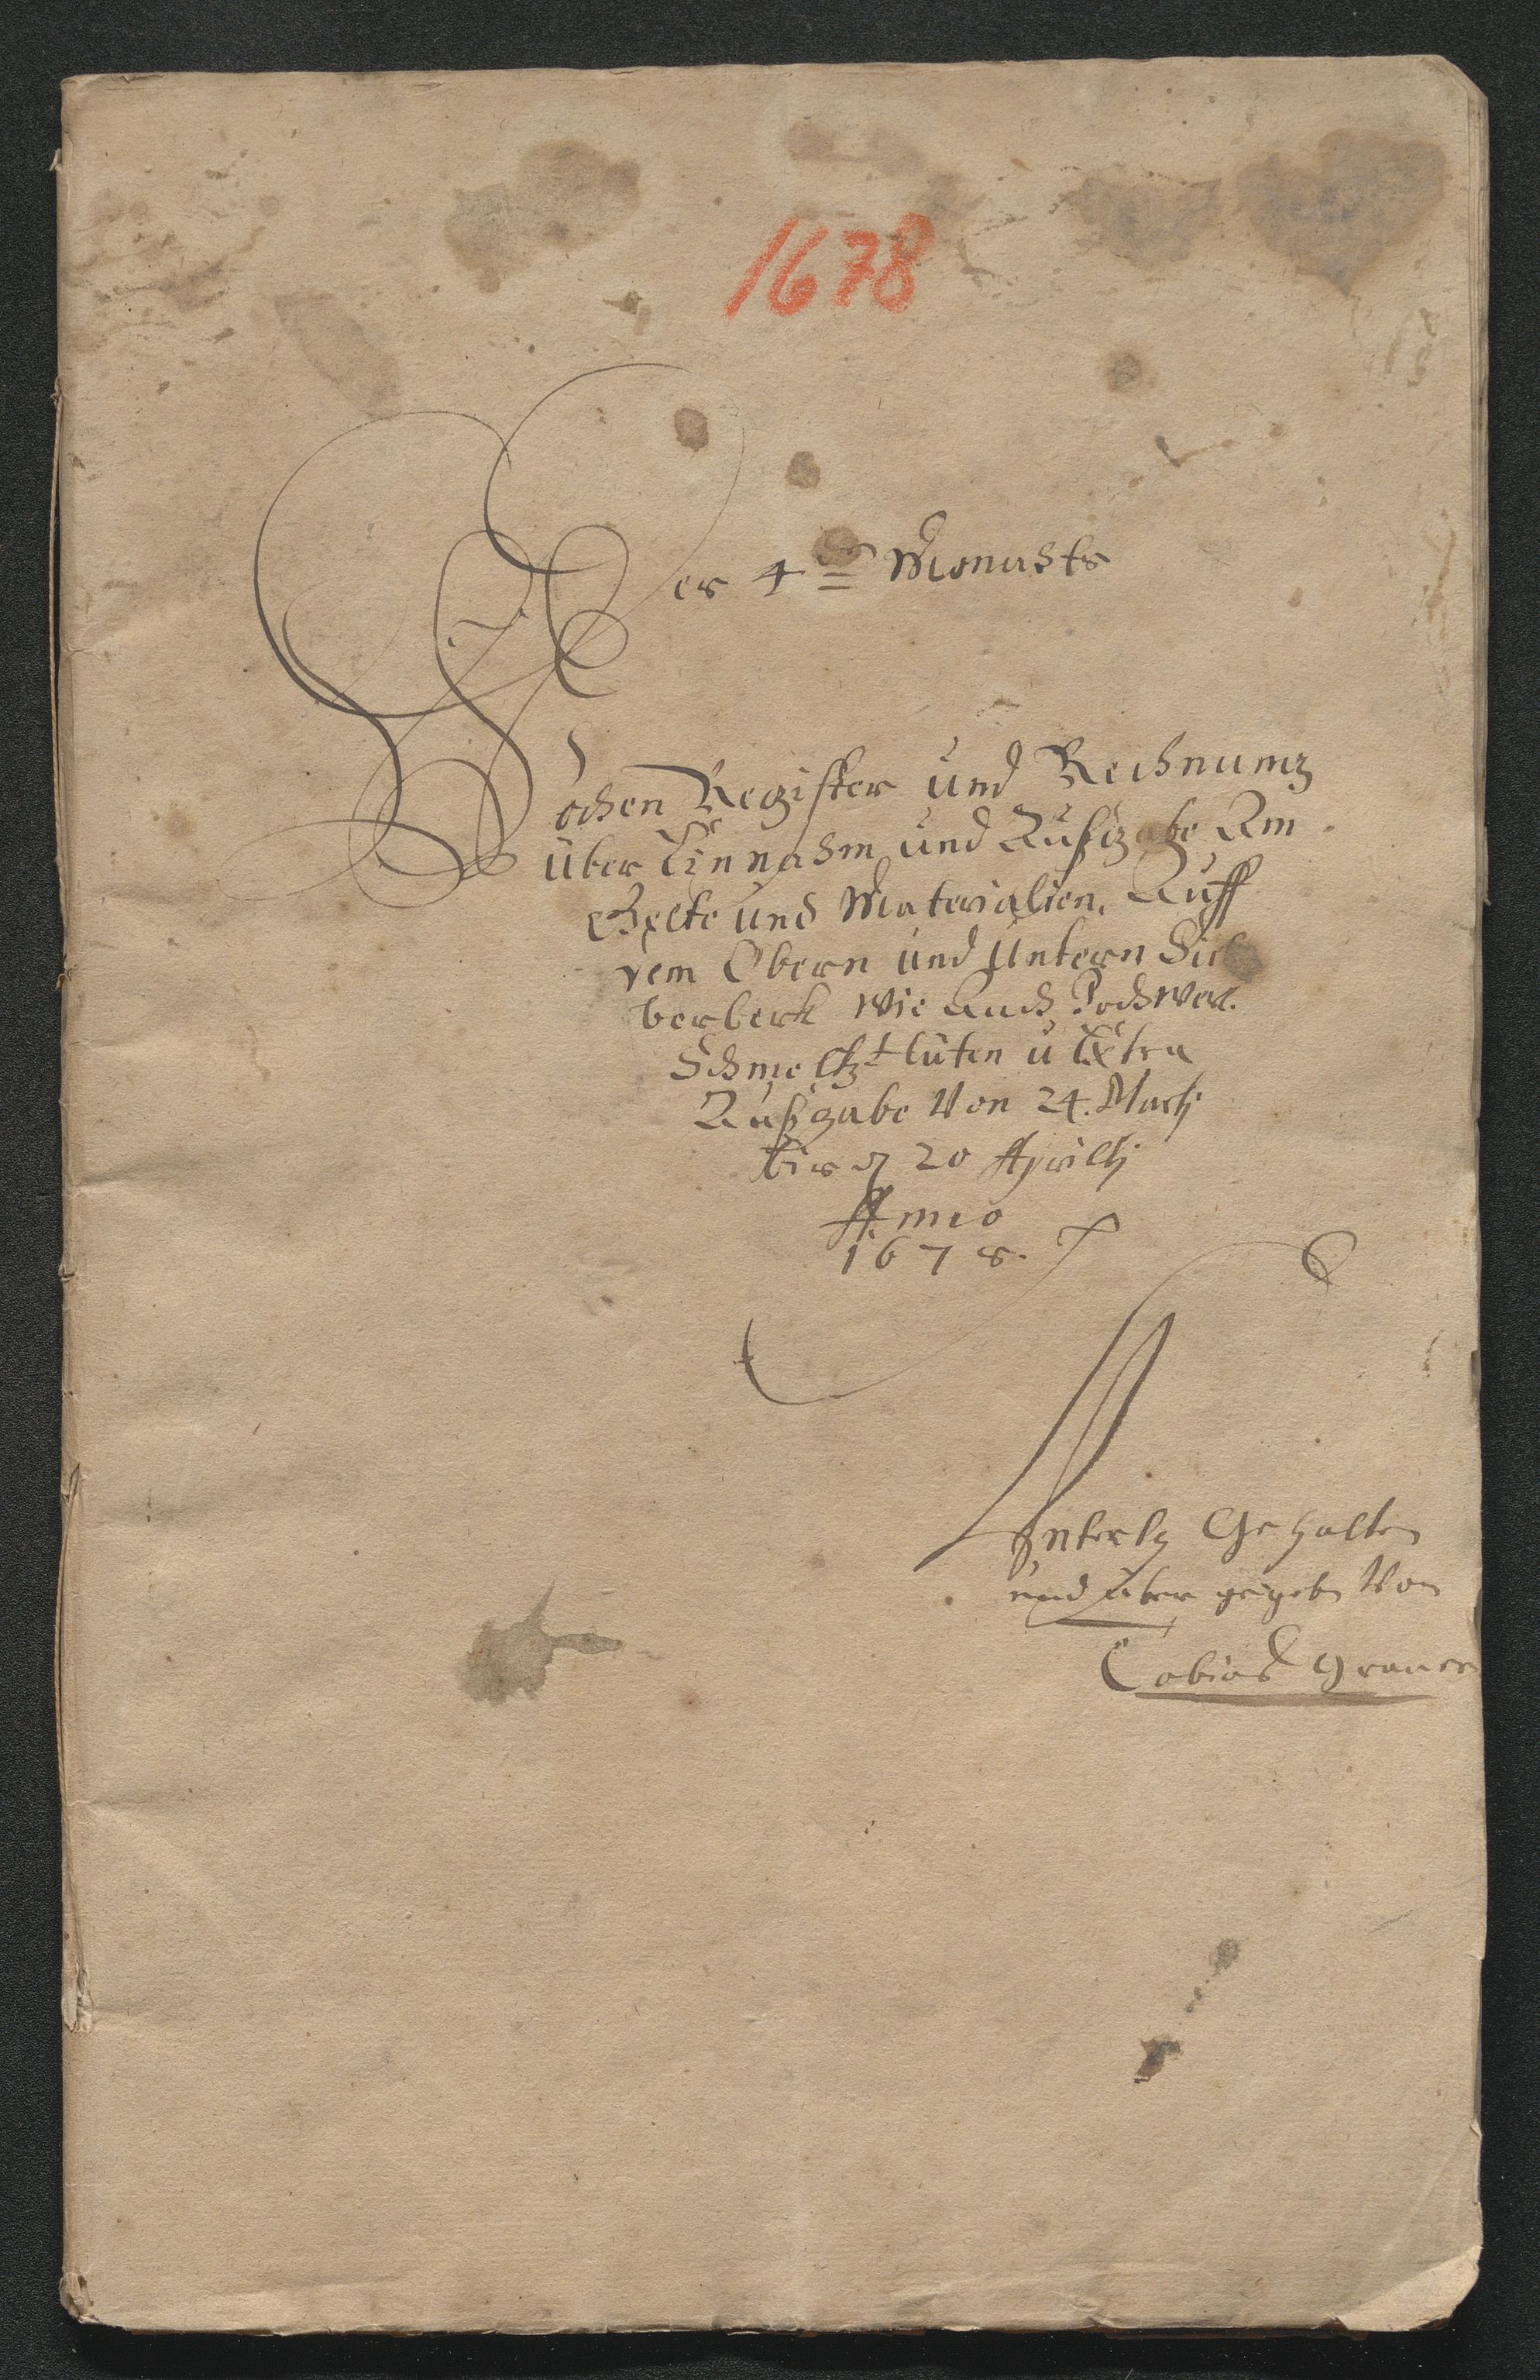 1678
Der 4 Monahts
Wochen Register und Rechnung
über Einnahm und Außgabe Am
Gelte und Materialien, Auff
dem Obern und Untern Sil
berberk wie Auch Pochwer.
Schmeltz Hüten u Extra
Außgabe Von 24. Martj
bis d 20 Aprillj
Anno
1678.
Gehalten
und über gegeb Von
Tobias